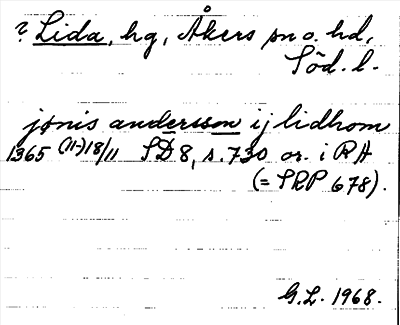 ? Lida, hg, Åkers sn o. hd,
Söd. l.
jønis andersson ij lidhom
1365 (11-)18/11 SD 8, s. 730 or. i RA
(= SRP 678).
G.L. 1968.